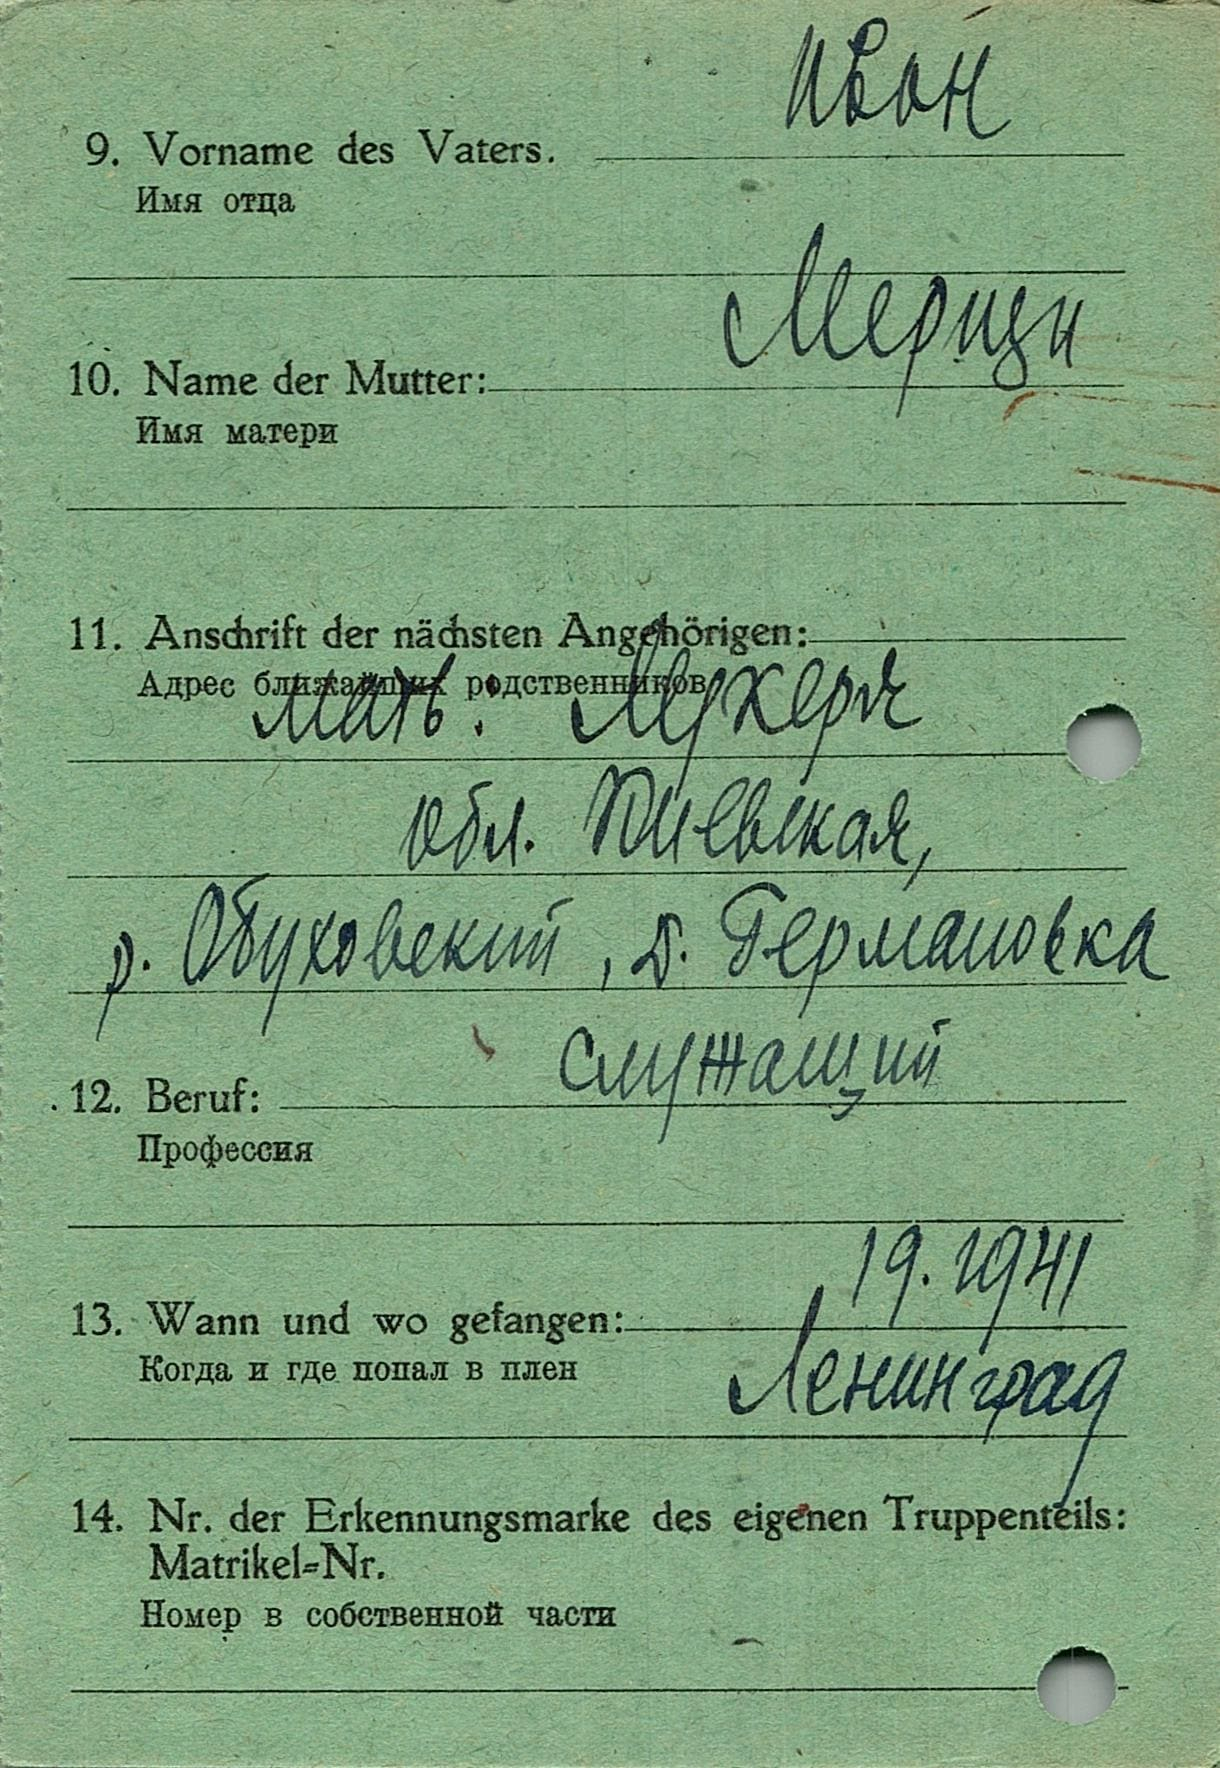 Ивон
9. Vorname des Vaters.
Имя отца
Мерици
10. Name der Mutter:
Имя матери
11. Anschrift der nächsten Angehörigen:
Адрес ближайших родственников
мать:
обл. Киевская,
р. Обуховский, д. Германовка
служащий
12. Beruf:
Профессия
19. 1941
13. Wann und wo gefangen:
Когда и где попал в плен
Ленинград
14. Nr. der Erkennungsmarke des eigenen Truppenteils:
Matrikel-Nr.
Номер в собственной части